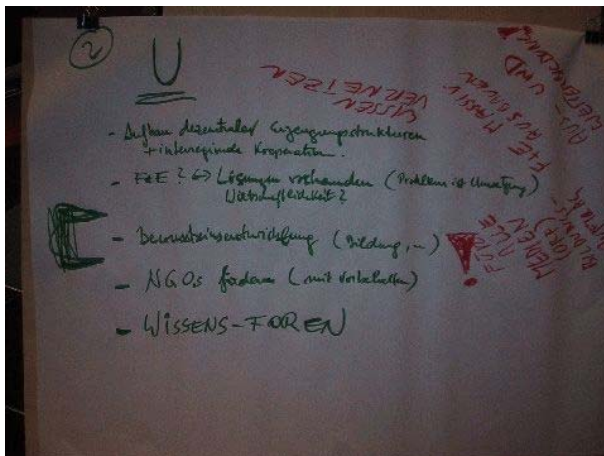 2
U
- Aufbau dezentraler Erzeugungsstrukturen
+ interregionale Kooperation.
- F+E? <-> Lösungen vorhanden (Problem ist Umsetzung)
Wirtschaftlichkeit?
- Bewusstseinsentwicklung (Bildung, ...)
- NGOs fördern (mit Vorbehalten)
- WISSENS-FOREN
WISSEN
VERNETZEN
F+E MASSIV
AUSBAUEN
AUS- UND
WEITERBILDUNG!
FÜR
ALLE
!